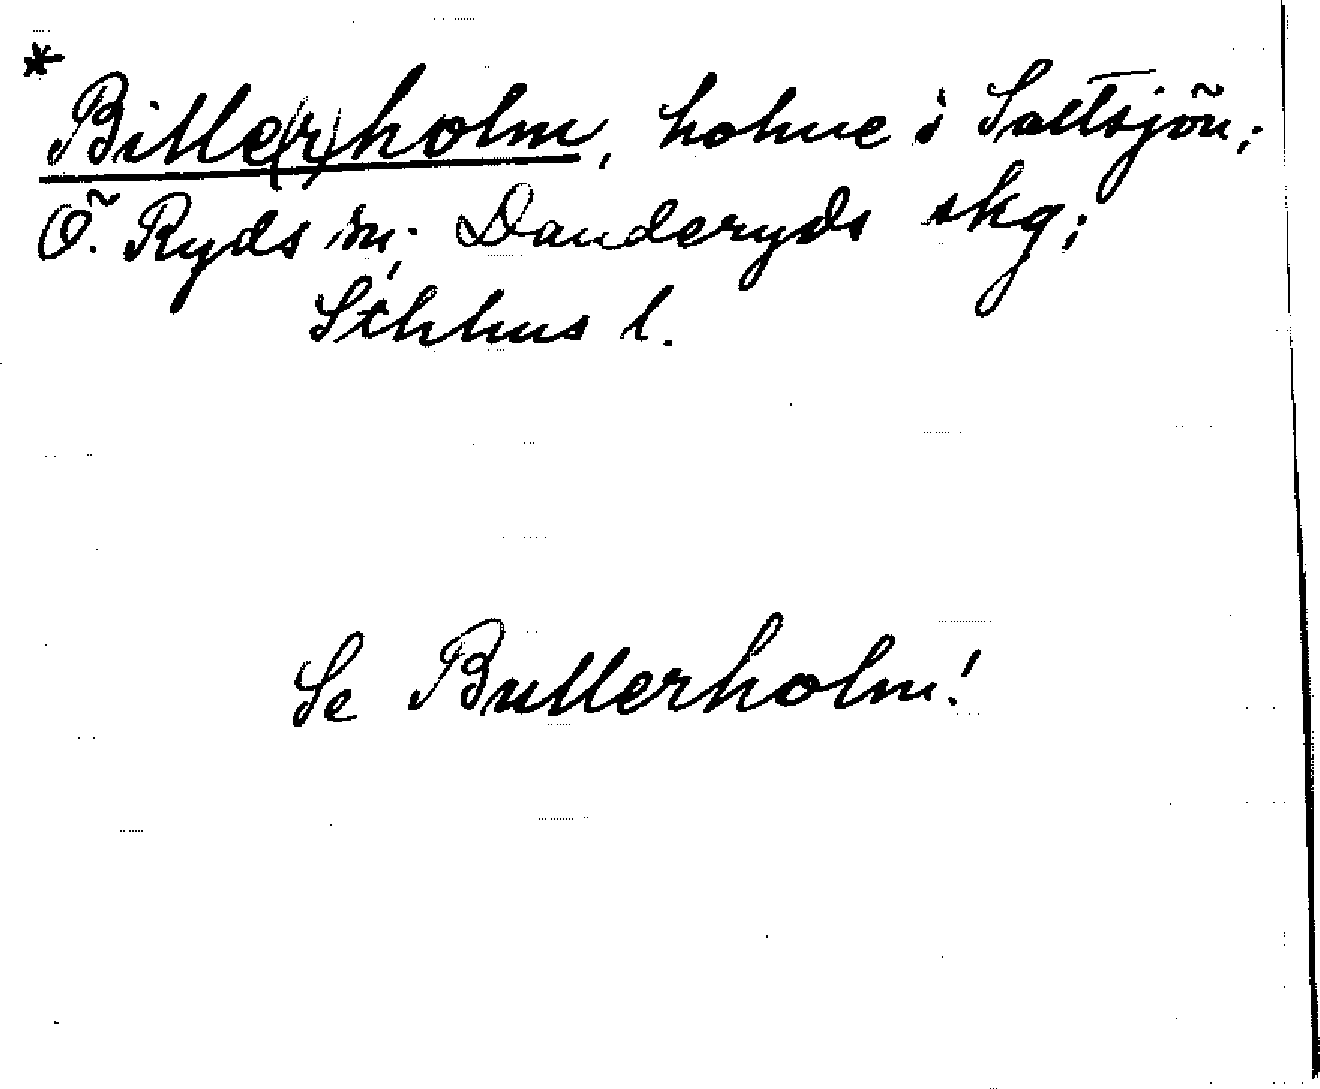 *
Bille(r)holm, holme i Saltsjön;
Ö. Ryds sn; Danderyds skg;
Sthlms l.
Se Bullerholm!